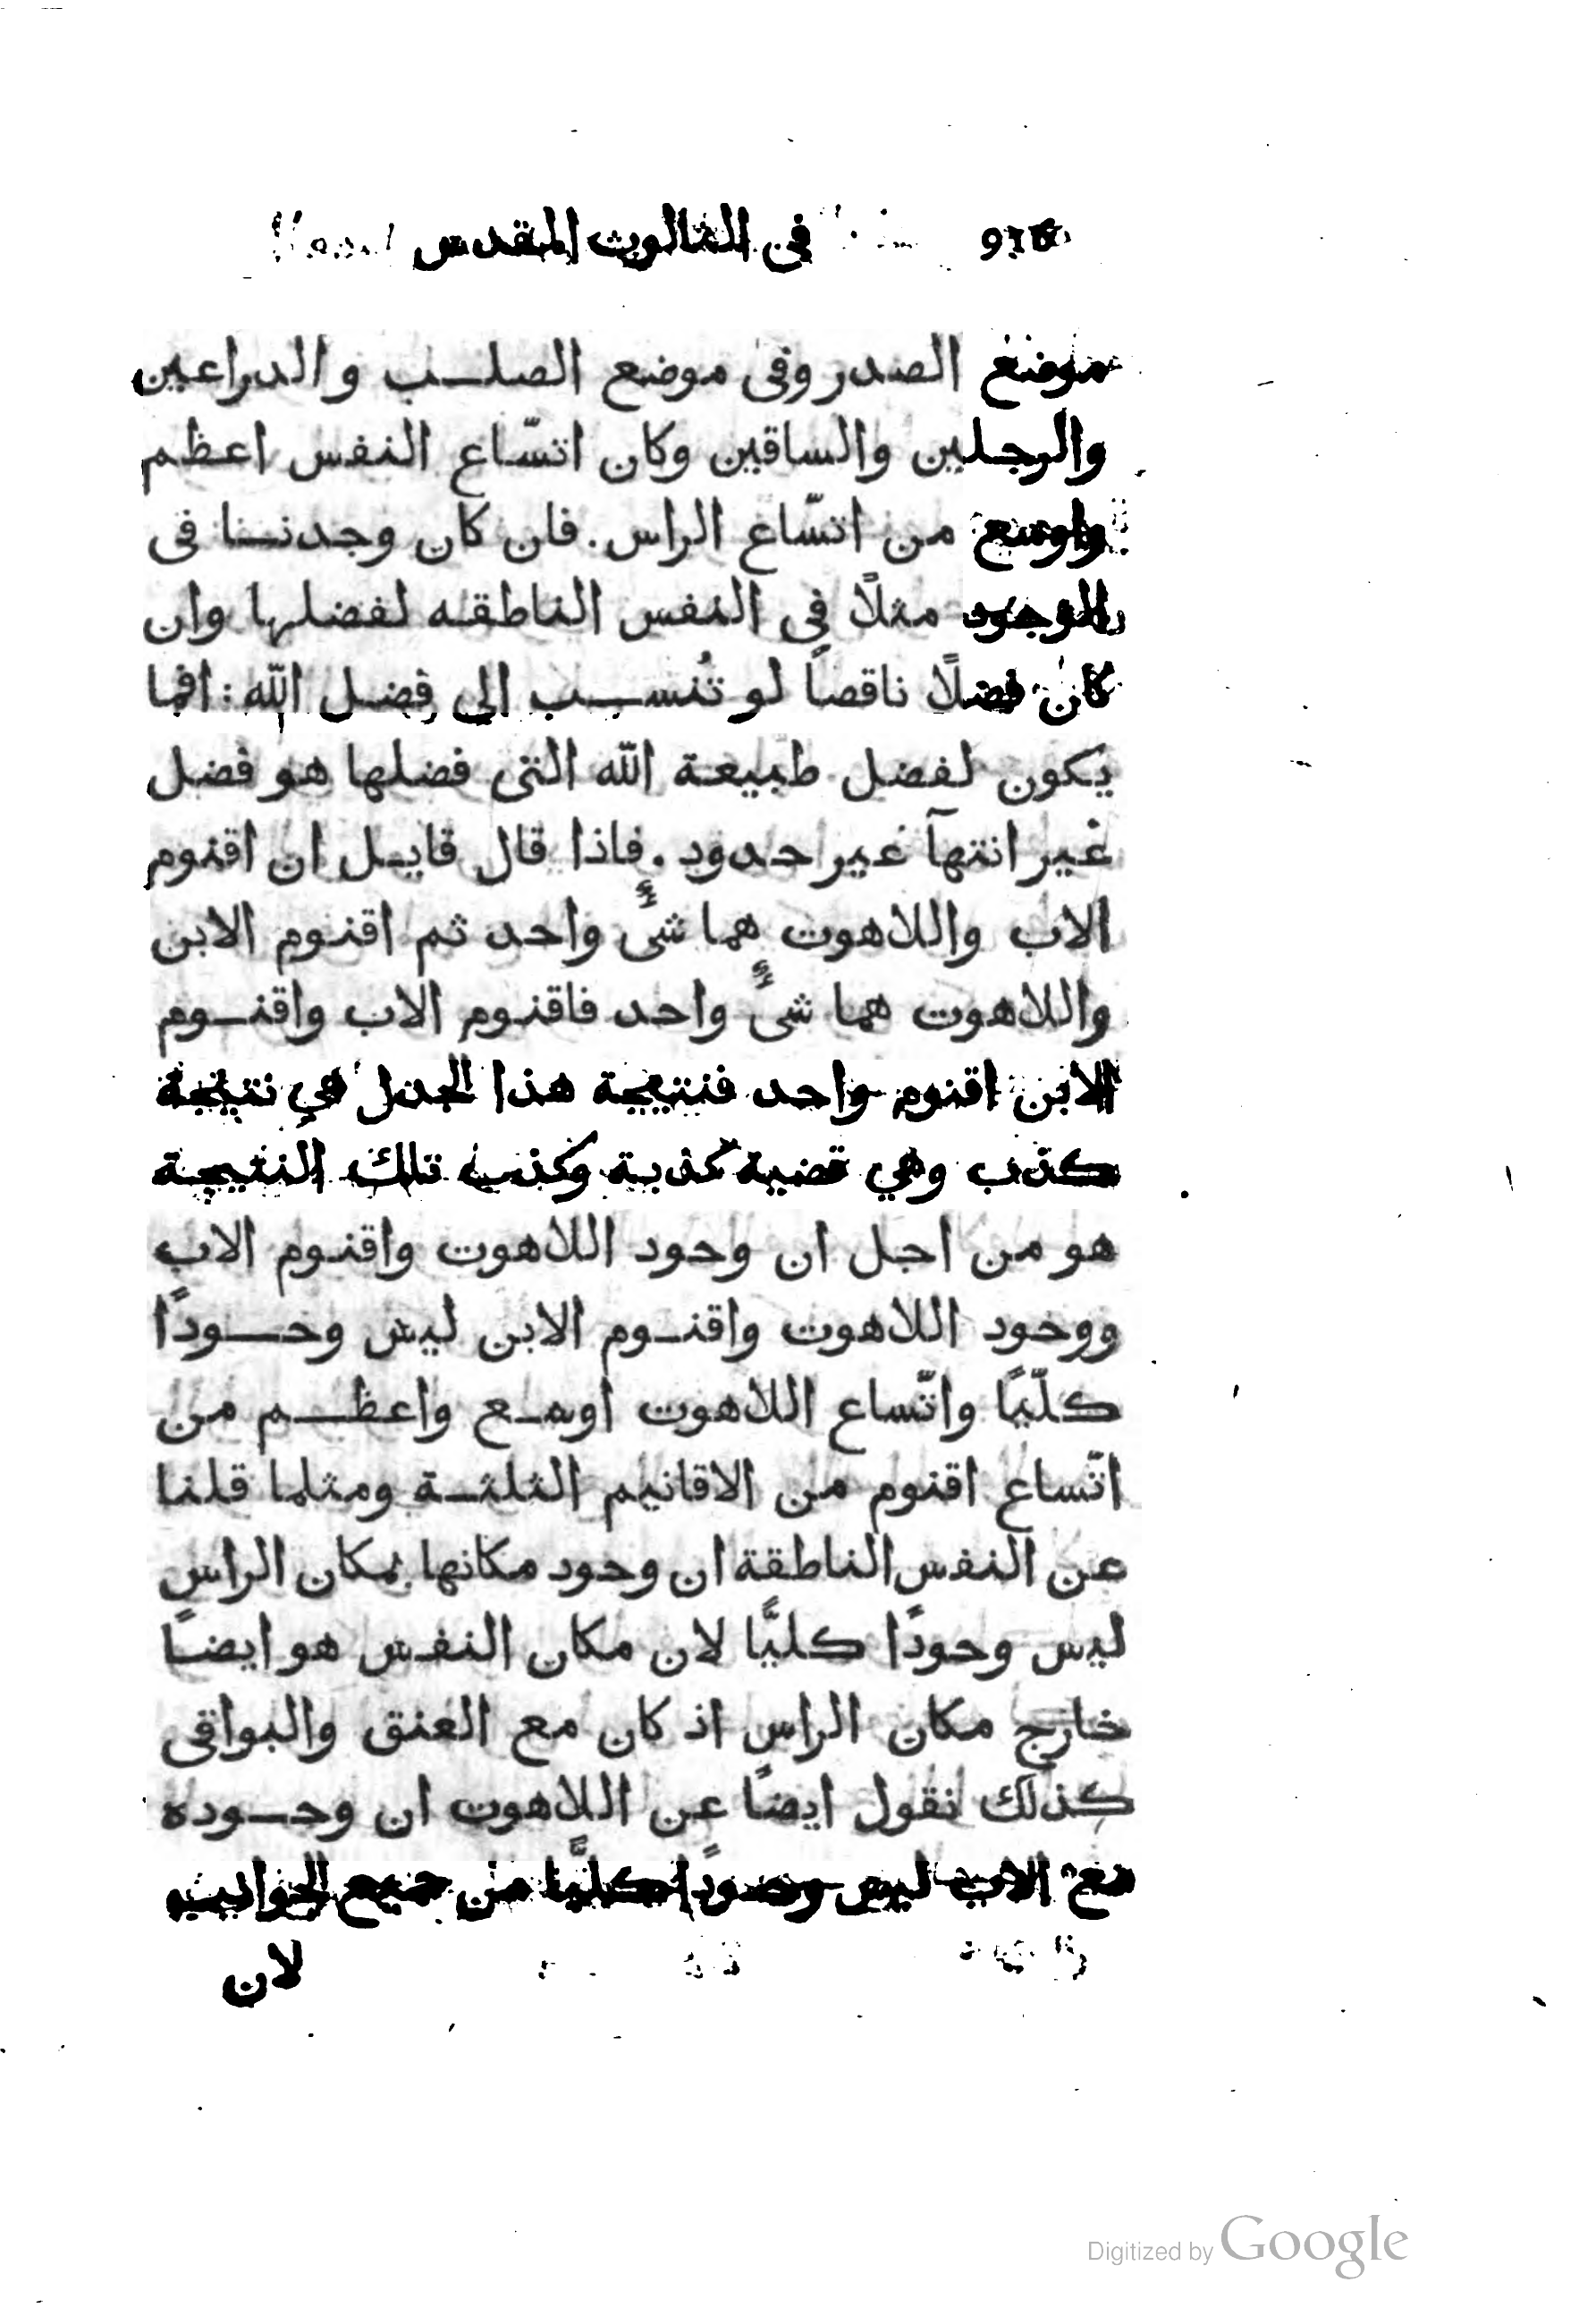 في الثالوث المقدس
موضع الصدر وفى موضع الصلب والدراعين
والرجلين والساقين وكان اتسّاع النفس اعظم
واوسع من اتسّاع الراس. فان كان وجدنا فى
الموجود مثلاً في النفس الناطقه لفضلها وان
كان فضلًا ناقصاً لو تُنسب الى فضل اللّه : افما
يكون لفضل طبيعة اللّه التى فضلها هو فضل
غير انتهآ غير حدود . فاذا قال قايل ان اقنوم
الاب واللاهوت هما شىءٌ واحد ثم اقنوم الابن
واللاهوت هما شىءٌ واحد فاقنوم الاب واقنوم
الابن اقنوم واحد فنتيجة هذا الجدل هي نتيجة
كذب وهي قضية كذبة وكذب تلك النتيجة
هو من اجل ان وحود اللاهوت واقنوم الاب
ووحود اللاهوت واقنوم الابن ليس وحودًا
كلّيًا واتّساع اللاهوت اوسع واعظم من
اتّساع اقنوم من الاقانيم الثلثة ومثلما قلنا
عن النفس الناطقة ان وحود مكانها بمكان الراس
ليس وحودًا كليًّا لان مكان النفس هو ايضاً
خارج مكان الراس اذ كان مع العنق والبواقى
كذلك نقول ايضاً عن اللاهوت ان وحوده
مع الاب ليس وحودًا كليًّا من جميع الجوانب
لان
Digitized by Google